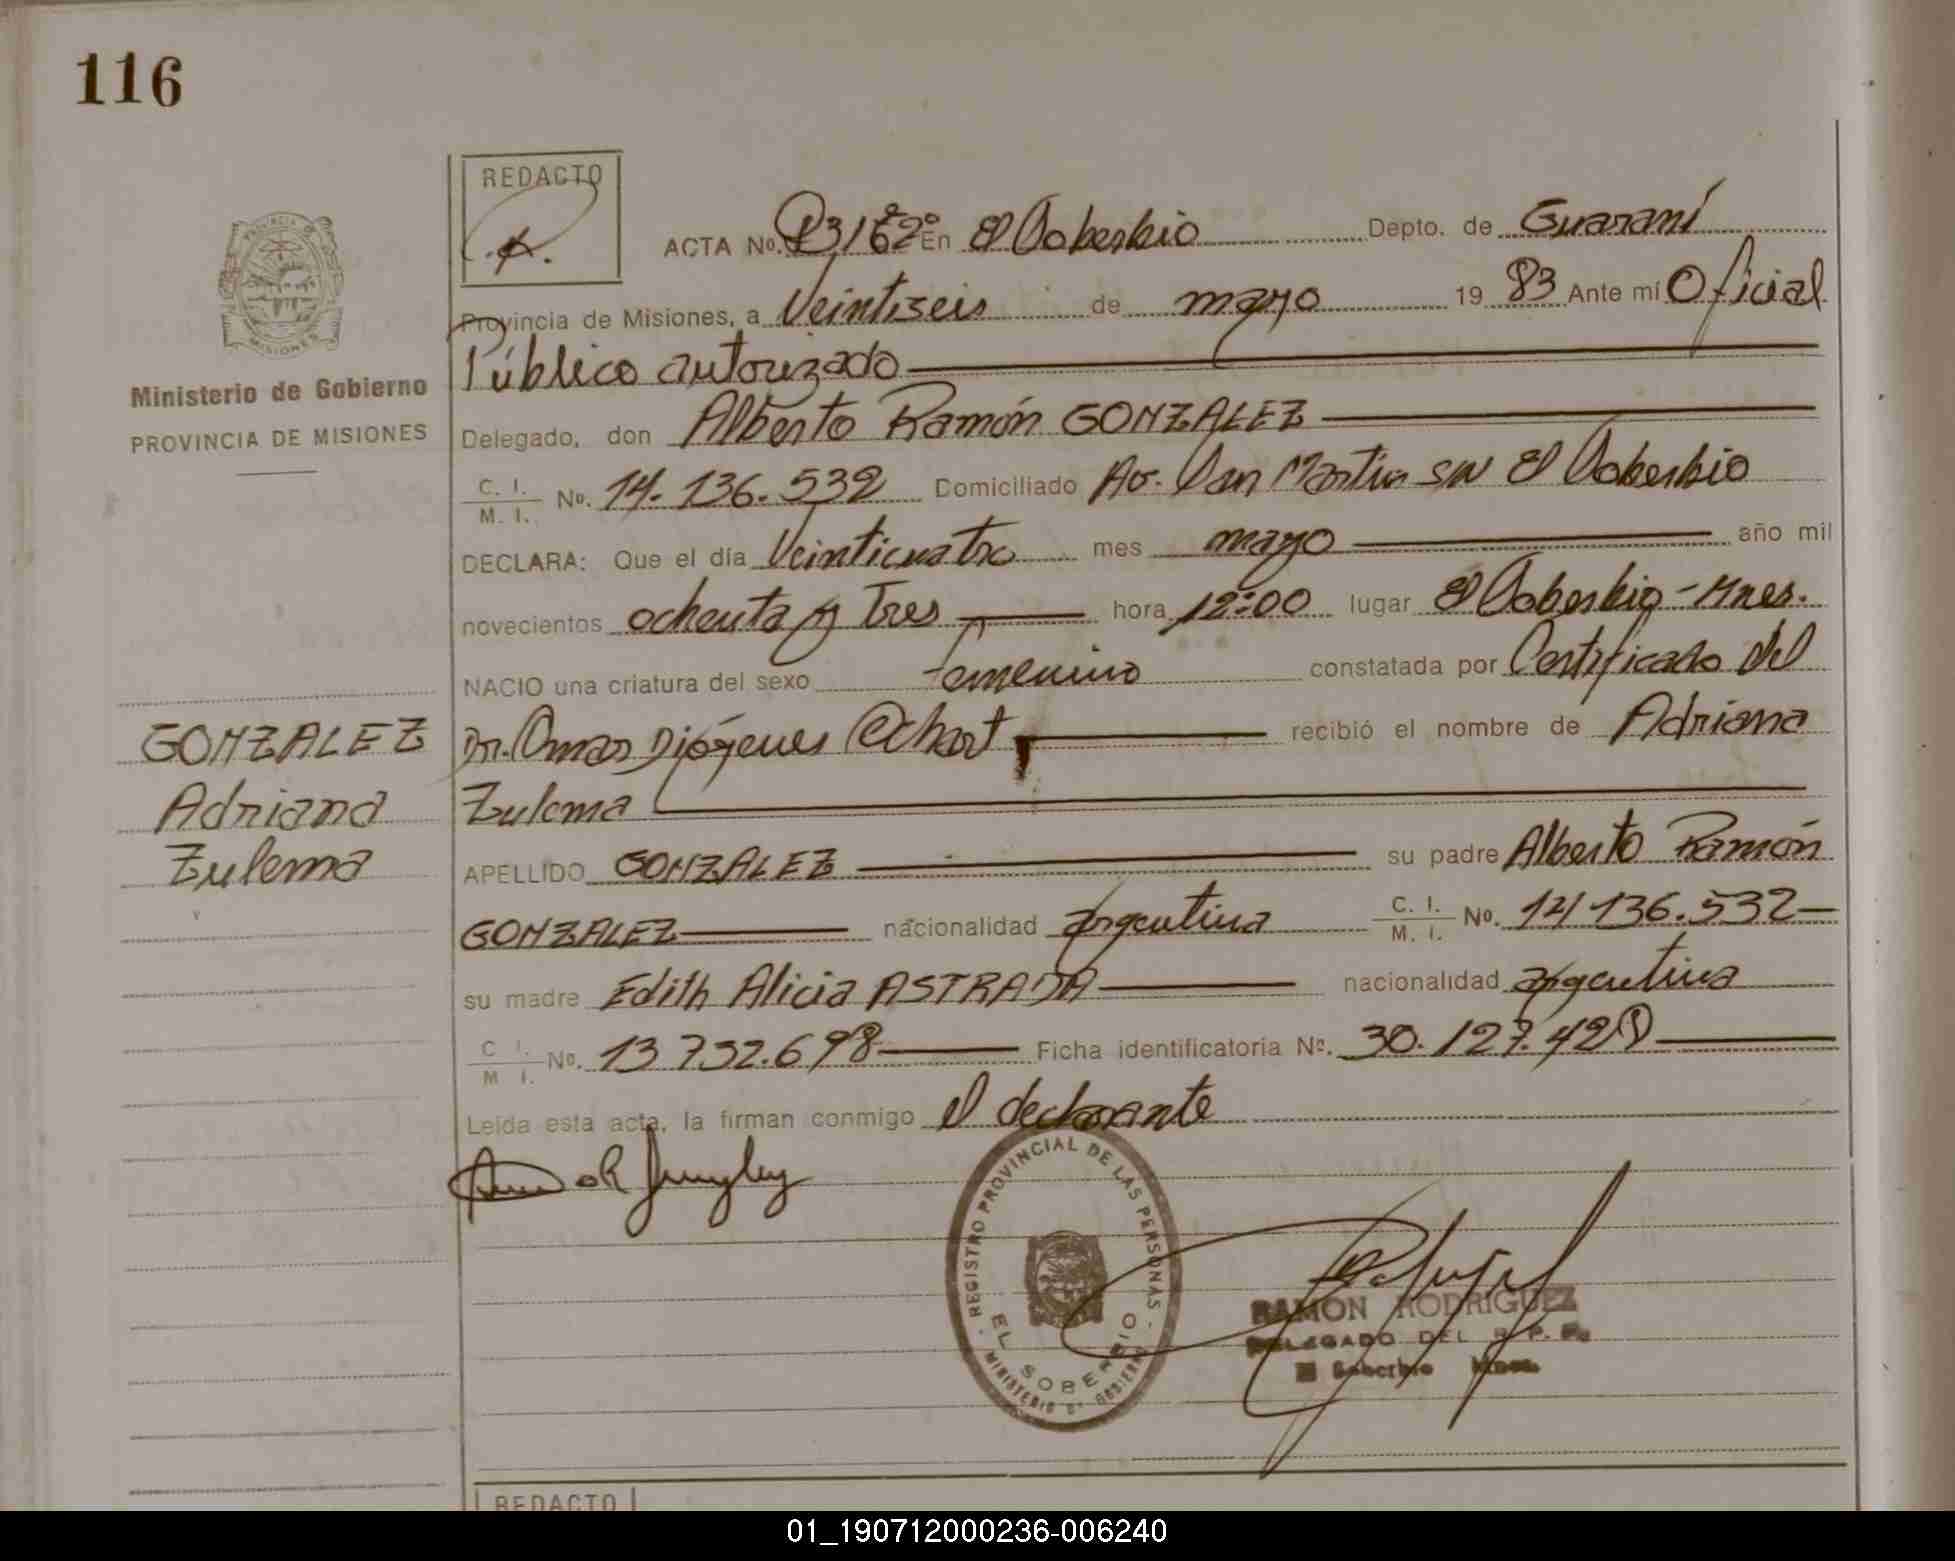 116
REDACTO
ACTA No. En El Soberbio Depto. de Guaraní
Provincia de Misiones, a Veintiseis de mayo 19 83 Ante mí Oficial
Público autorizado
Ministerio de Gobierno
PROVINCIA DE MISIONES
Delegado, don Alberto Ramón GONZALEZ
C. I. M. I. No. 14.136.532 Domiciliado Av. San Martin S/N El Soberbio
DECLARA: Que el día Veinticuatro mes mayo año mil
novecientos ochenta y tres hora 12:00 lugar El Soberbio - Mnes.
NACIO una criatura del sexo femenino constatada por Certificado del
Dr. Omar Diógenes Echart recibió el nombre de Adriana
Zulema
GONZALEZ
Adriana
Zulema
APELLIDO GONZALEZ su padre Alberto Ramón
GONZALEZ nacionalidad argentina C. I. M. I. No. 14 136.532
su madre Edith Alicia ASTRADA nacionalidad argentina
C. I. M. I. No. 13 732.698 Ficha identificatoria No. 30.127.42
Leída esta acta, la firman conmigo el declarante
REGISTRO PROVINCIAL DE LAS PERSONAS
EL SOBERBIO
MINISTERIO DE GOBIERNO
RAMON RODRIGUEZ
DELEGADO DEL R. P. P.
El Soberbio Mnes.
REDACTO
01_190712000236-006240